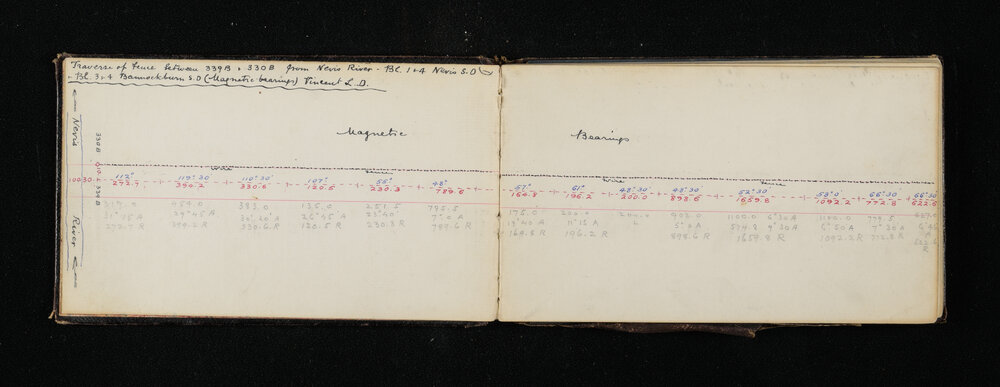 Traverse of fence between 339B & 330B from Nevis River. Bl. 1 & 4 Nevis S.D
& Bl. 3 & 4 Bannockburn S.D (Magnetic bearings) Vincent L.D.
Nevis River
330B
339B
Magnetic Bearings
Wire Fence Wire Fence
100.30 112° 119°30 110°30' 107° 55° 48° 57° 61° 48°30' 48°30 52°30' 58°0' 66°30 66°30
272.7 390.2 330.6 120.5 230.3 789.6 164.8 196.2 200.0 898.6 1659.8 1092.2 772.8 622.6
454.0 383.0 135.0 251.5 795.5 175.0 200.0 200.0 902.0 1100.0 6°30 A 1100.0 779.5
31°15 A 29°45 A 26°45 A 23°40 7°0 A 11°15 A 5°0 A 579.8 4°30 A 7°30 A
272.7 R 390.2 R 330.6 R 120.5 R 230.3 R 789.6 R 164.8 R 196.2 R 898.6 R 1659.8 R 1092.2 R 772.8 R